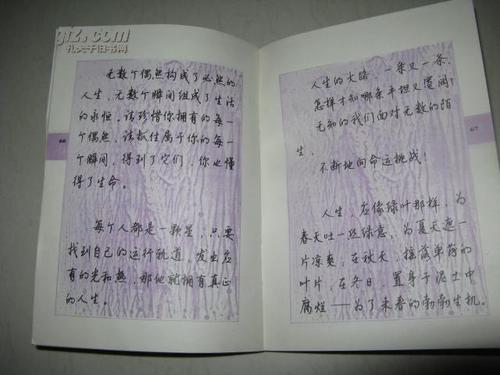 孔夫子旧书网
无数个偶然构成了必然的
人生，无数个瞬间组成了生活
的永恒。该珍惜你拥有的每一
个偶然，该抓住属于你的每一
个瞬间，得到了它们，你也懂
得了生命。
每个人都是一颗星，只要
找到自己的运行轨道，发出应
有的光和热，那他就拥有真正
的人生。
66
人生的大路 一条又一条，
怎样才知哪条平坦又宽阔？
无知的我们面对无数的陌
生，
不断地向命运挑战！
人生，应像绿叶那样，为
春天吐一丝绿意，为夏天遮一
片凉爽，在秋天，摇落单薄的
叶片，在冬日，置身于泥土中
腐烂——为了来春的勃勃生机。
67